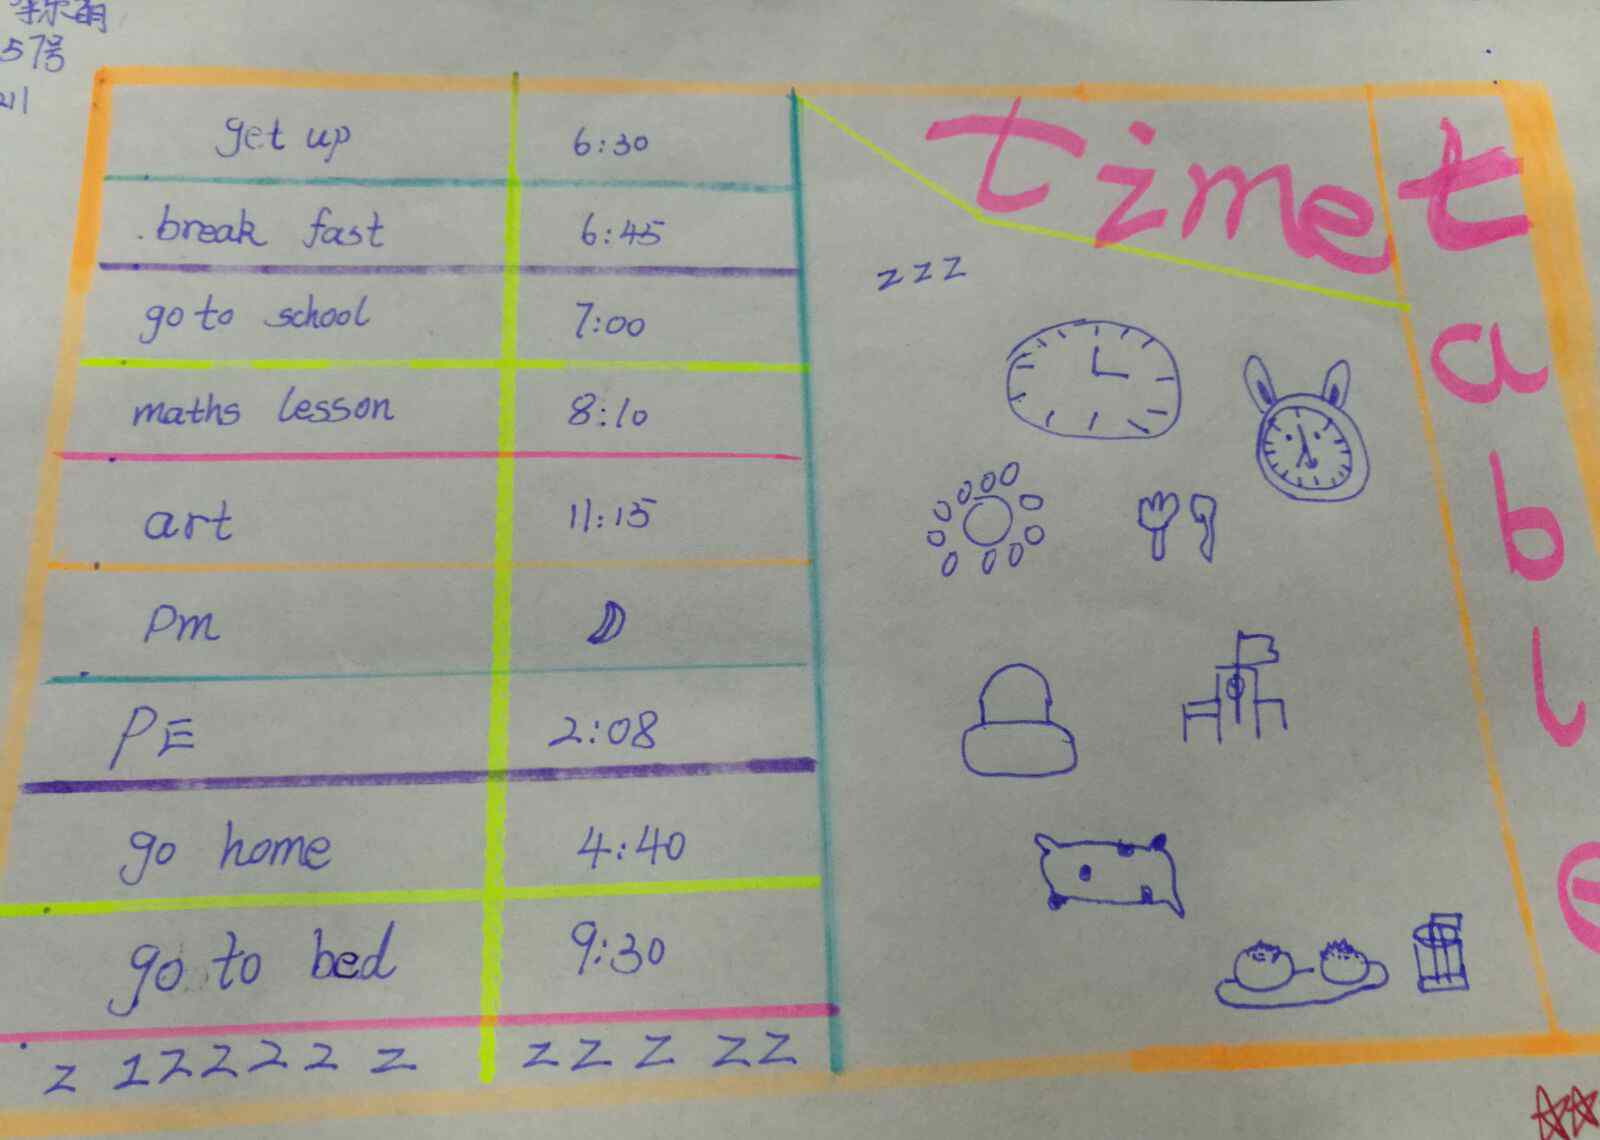 57号
211
time table
get up 6:30
break fast 6:45
go to school 7:00
maths lesson 8:10
art 11:15
pm
PE 2:08
go home 4:40
go to bed 9:30
z zzzzz z zzz zz
zzz